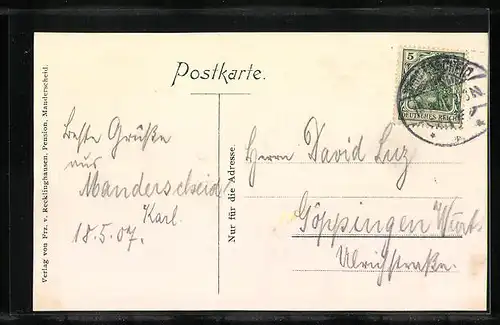 Postkarte.
Verlag von Frz. v. Recklinghausen, Pension, Manderscheid.
Beste Grüße
aus
Manderscheid
Karl.
18.5.07.
Nur für die Adresse.
5
DEUTSCHES REICH
Herrn David Luz
Göppingen Württ.
Ulrichstraße.